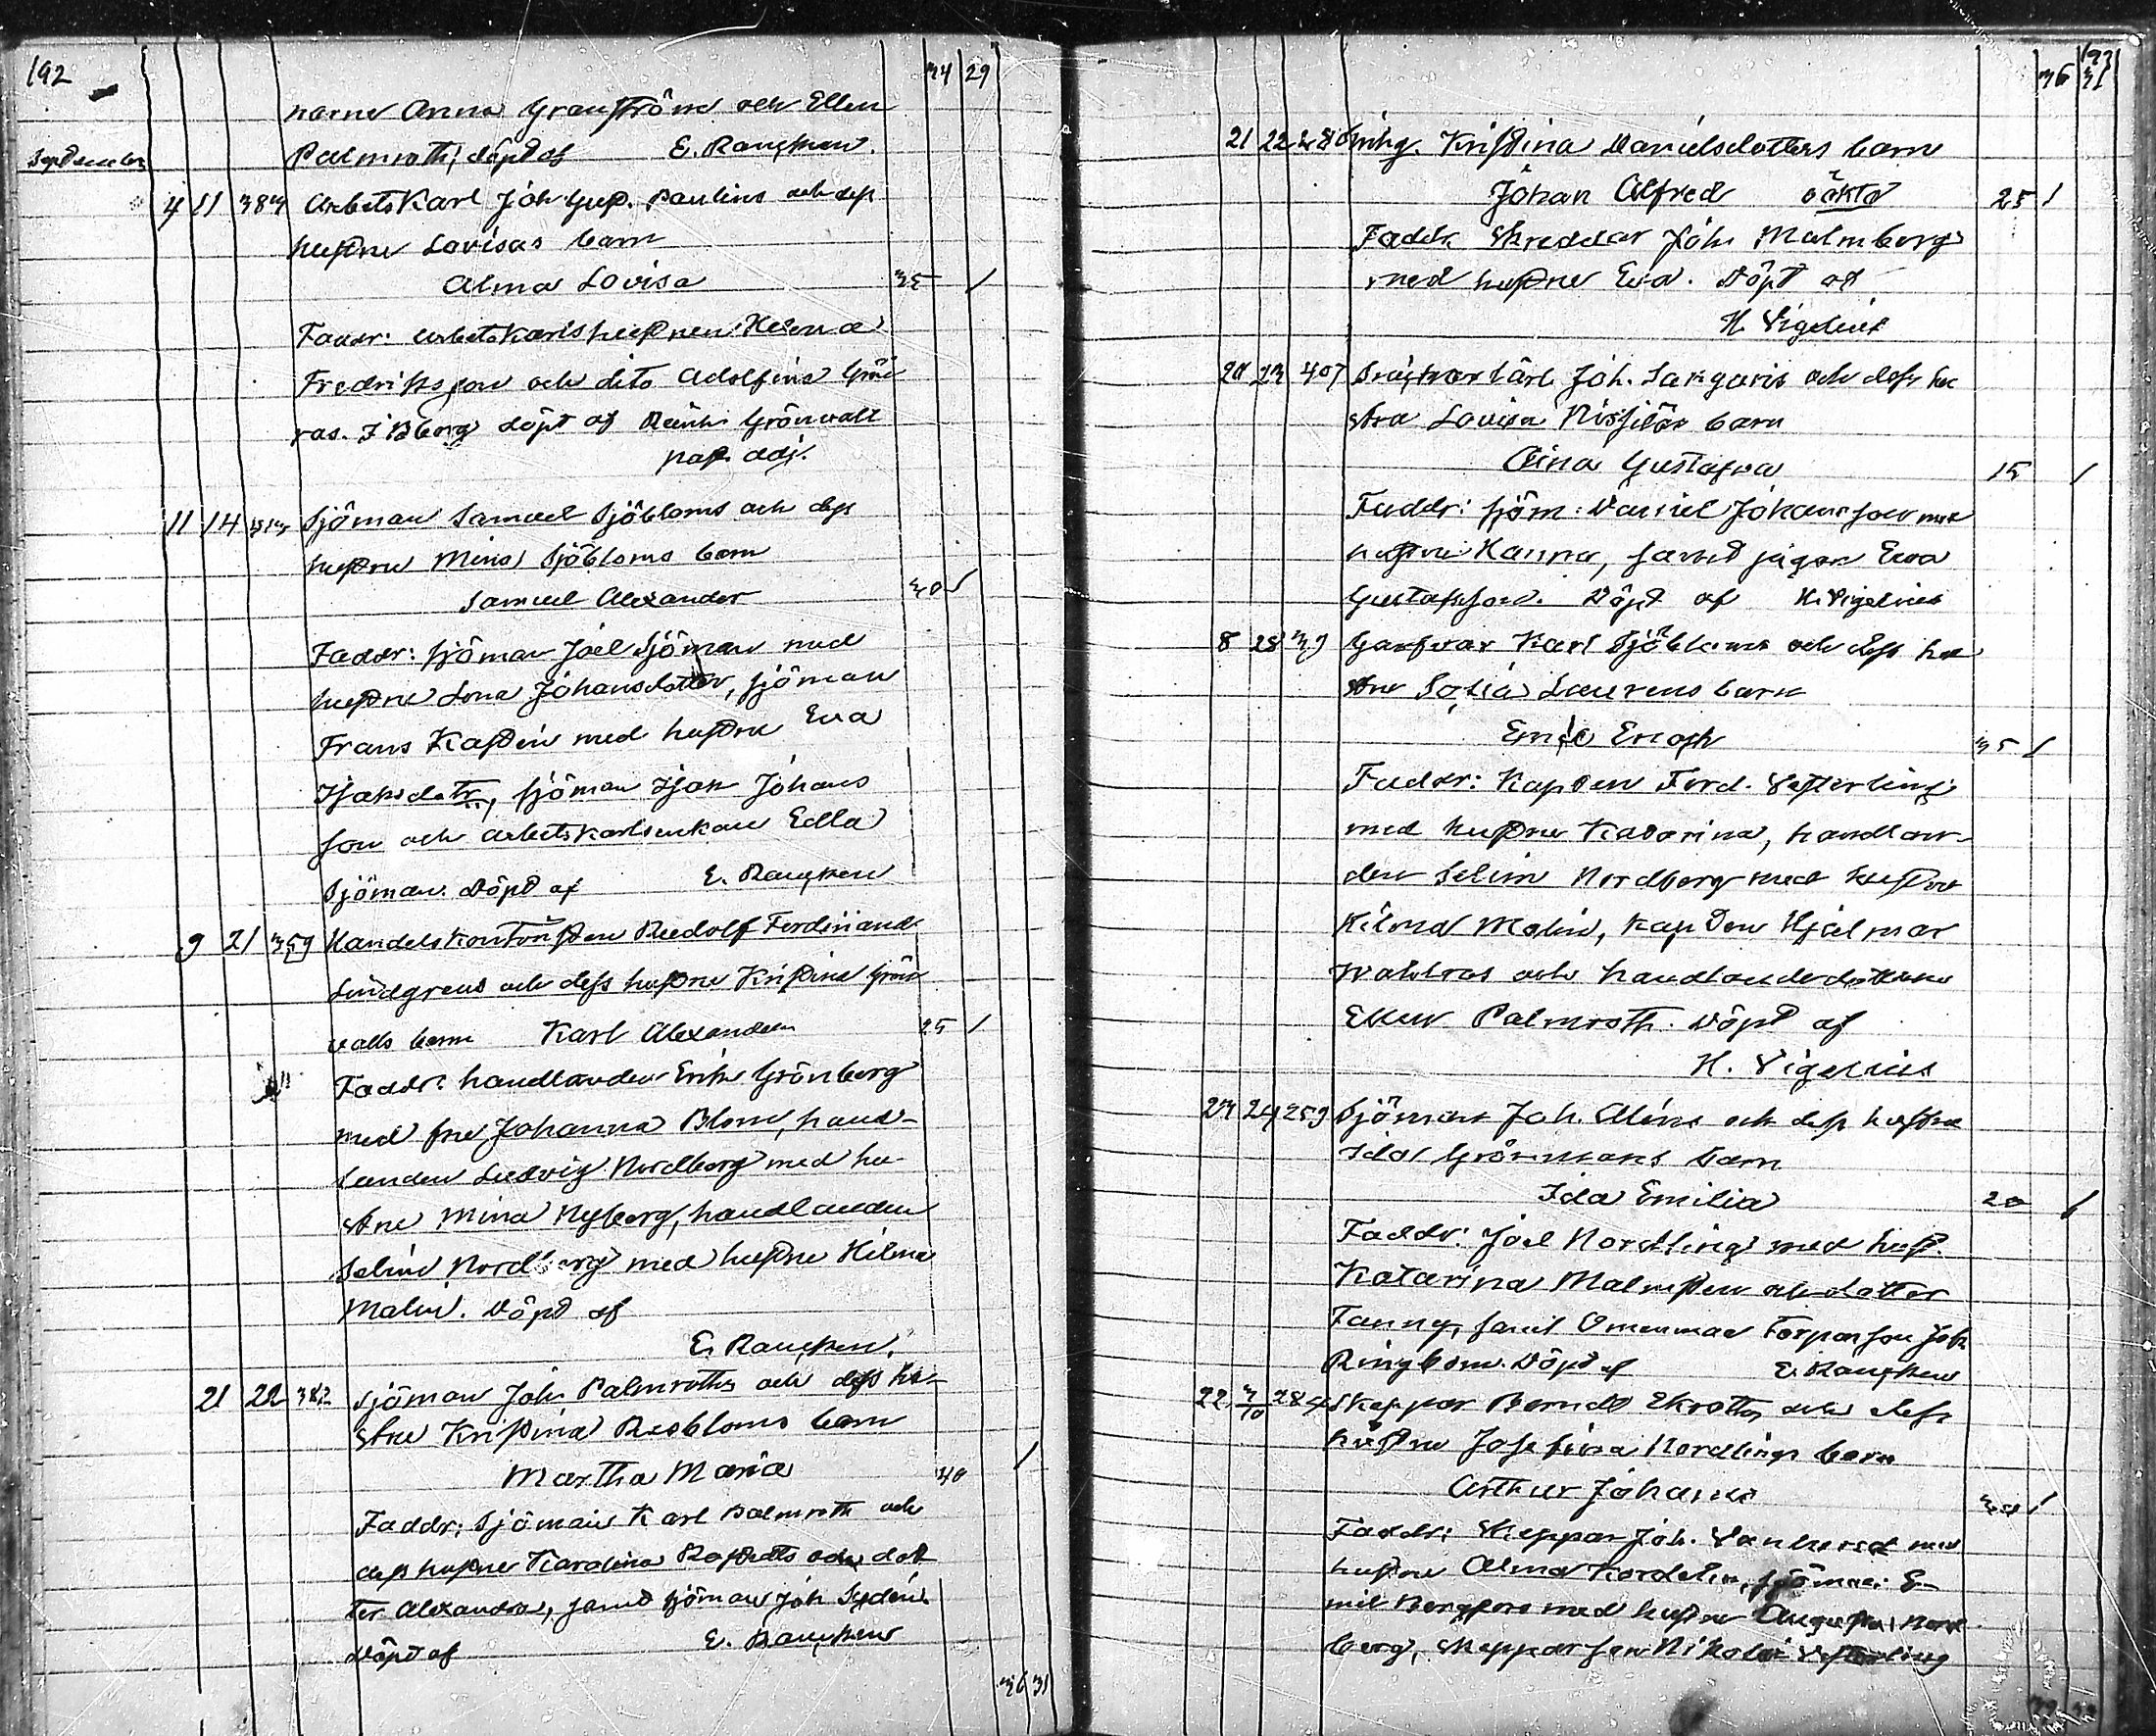 192
34 29
narne Anna Granström och Ellen
September
Palmroth, döpt af E. Rancken.
4 11 383 Arbetskarl Joh Gust. Paulins och dess
hustru Lovisas barn
Alma Lovisa 35 /
Faddr: arbetskarlshustrun Helena
Fredriksson och dito Adolfina Grön
ros. I Bborg döpt af Reinh. Grönvall
past. adj.
11 14 Sjöman Samuel Sjöbloms och dess
hustru Mina Sjöbloms barn
Samuel Alexander 30 /
Faddr: sjöman Joel Sjöman med
hustru Lona Johansdotter, sjöman
Frans Kastén med hustru Eva
Isaksdotr, sjöman Isak Johans
son och arbetskarlsenkan Edla
Sjöman. Döpt af E. Rancken
9 21 359 Handelskontoristen Rudolf Ferdinand
Lindgrens och dess hustru Kristina Grön
valls barn Karl Alexander 25 /
Faddr: handlanden Erik Grönberg
med fru Johanna Blom, hand-
landen Ludvig Nordberg med hu-
stru Mina Nyberg, handlanden
Selim Nordberg med hustru Hilma
Malin. Döpt af
E. Rancken.
21 22 382 Sjöman Joh. Palmroths och dess hu-
stru Kristina Rosbloms barn
Martha Maria 40 /
Faddr: Sjöman Karl Palmroth och
dess hustru Karolina Rostedts och dot
ter Alexandra, samt sjöman Joh Sydén.
Döpt af E. Rancken
36 31
193
36 31
21 22 Inhg. Kristina Danielsdotters barn
Johan Alfred oäkta 25 /
Faddr. Skreddar Joh. Malmberg
med hustru Eva. Döpt af
H. Vigelius
20 23 407 Joh. Sakgaris och dess hu
stru Lovisa barn
Aina Gustafva 15 /
Faddr: sjöm: Daniel Johansson med
hustru Hanna, samt pigan Eva
Gustafsson. Döpt af H. Vigelius
8 28 Garfvar Karl Sjöbloms och dess hu
stru Sofia Laurens barn
Emil Enoch 35 /
Faddr: Kapten Ferd. Vesterling
med hustru Katarina, handlan-
den Selim Nordberg med hustru
Hilma Malin, Kapten Hjalmar
Wahlroos och handlandedottern
Ellen Palmroth. Döpt af
H. Vigelius
23 24 259 Sjöman Joh. Aléns och dess hustru
Ida Grönmans barn
Ida Emilia 20 /
Faddr: Joel Nordling med hust.
Katarina Malmsten och dotter
Fanny, samt Torparson Joh
Ringbom. Döpt af E. Rancken
22 3/10 284 Skeppar Bernds Ekroths och dess
hustru Josefina Nordlings barn
Arthur Johannes 30 /
Faddr: Skeppar Joh. med
hustru Alma Nordelin, sjöman E-
mil Bergfors med hustru Augusta Nord
berg, Skepparson Nikolai Vesterling